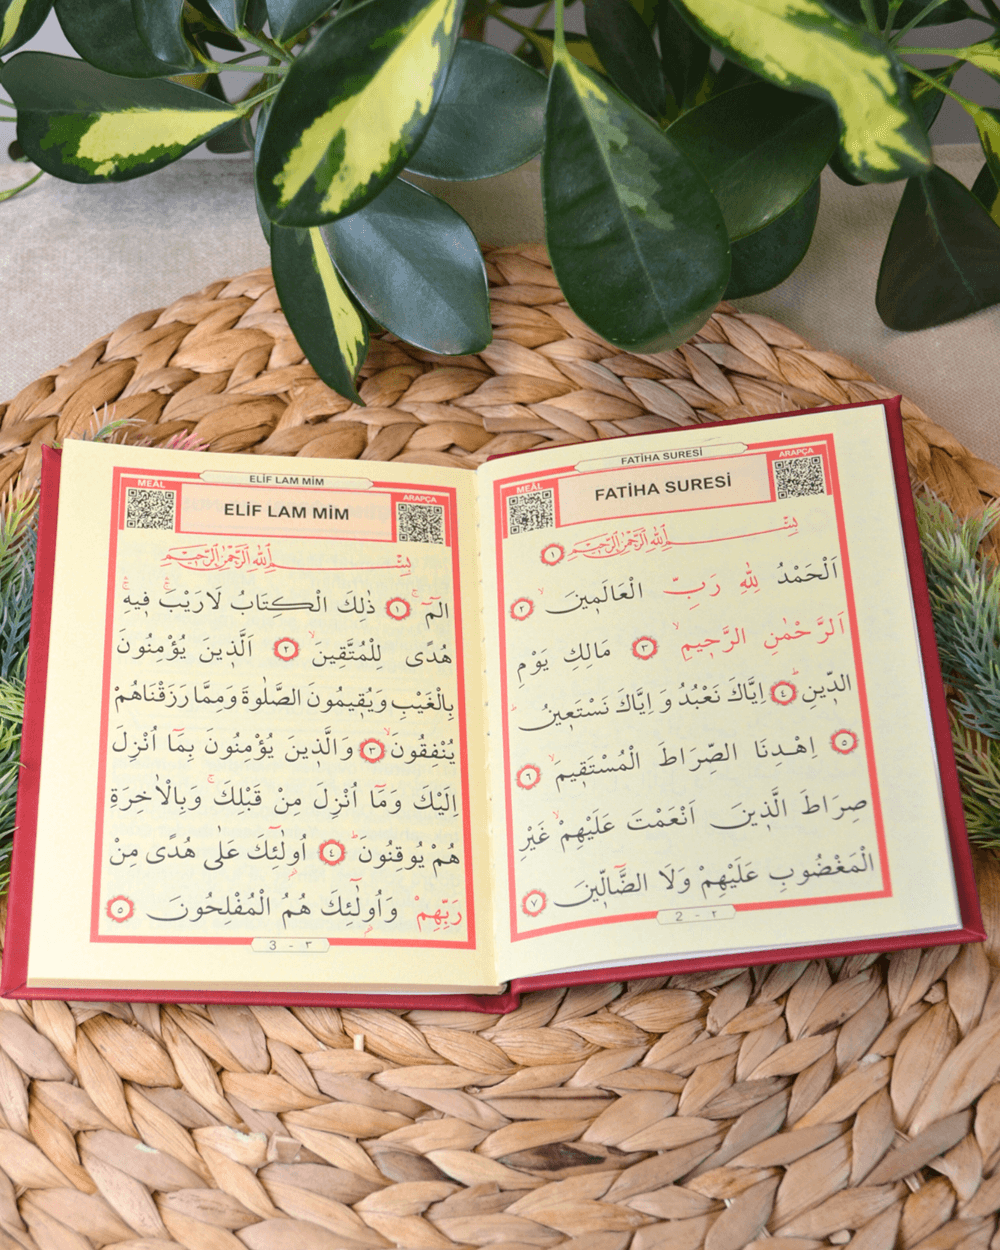 FATİHA SURESİ
MEÂL
FATİHA SURESİ
ARAPÇA
بِسْمِ اللهِ الرَّحْمٰنِ الرَّحِيمِ ١
اَلْحَمْدُ لِلّٰهِ رَبِّ الْعَالَمٖينَ ۙ ٢
اَلرَّحْمٰنِ الرَّحٖيمِ ۙ ٣ مَالِكِ يَوْمِ
الدّٖينِ ؕ ٤ اِيَّاكَ نَعْبُدُ وَ اِيَّاكَ نَسْتَعٖينُ ؕ
٥ اِهْدِنَا الصِّرَاطَ الْمُسْتَقٖيمَ ۙ ٦
صِرَاطَ الَّذٖينَ اَنْعَمْتَ عَلَيْهِمْ ۙ غَيْرِ
الْمَغْضُوبِ عَلَيْهِمْ وَلَا الضَّٓالّٖينَ ٧
2 - ٢
ELİF LAM MİM
MEÂL
ELİF LAM MİM
ARAPÇA
بِسْمِ اللهِ الرَّحْمٰنِ الرَّحِيمِ
الٓمٓ ۚ ١ ذٰلِكَ الْكِتَابُ لَارَيْبَ ۚ فٖيهِ ۚ
هُدًى لِلْمُتَّقٖينَ ۙ ٢ اَلَّذٖينَ يُؤْمِنُونَ
بِالْغَيْبِ وَيُقٖيمُونَ الصَّلٰوةَ وَمِمَّا رَزَقْنَاهُمْ
يُنْفِقُونَ ۙ ٣ وَالَّذٖينَ يُؤْمِنُونَ بِمَٓا اُنْزِلَ
اِلَيْكَ وَمَٓا اُنْزِلَ مِنْ قَبْلِكَ ۚ وَبِالْاٰخِرَةِ
هُمْ يُوقِنُونَ ؕ ٤ اُولٰٓئِكَ عَلٰى هُدًى مِنْ
رَبِّهِمْ وَاُولٰٓئِكَ هُمُ الْمُفْلِحُونَ ٥
3 - ٣